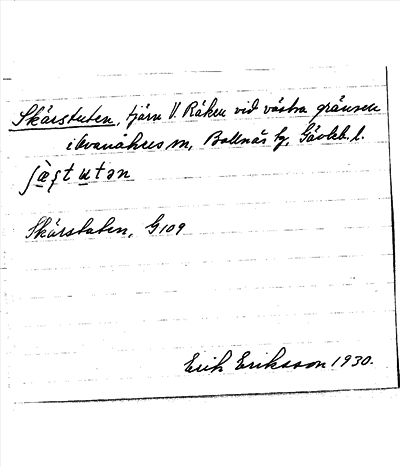 Skärstuten, tjärn V. Råken vid västra gränsen
i Svanåkers sn, Bollnäs tg, Gävleb. l.
ʃæʂtutən
Skärstuten, G109
Erik Eriksson 1930.